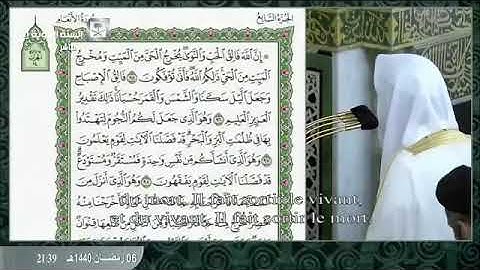 سُورَةُ الأَنْعَامِ
الجُزْءُ السَّابِعُ
إِنَّ ٱللَّهَ فَالِقُ ٱلْحَبِّ وَٱلنَّوَىٰ يُخْرِجُ ٱلْحَيَّ مِنَ ٱلْمَيِّتِ وَمُخْرِجُ
ٱلْمَيِّتِ مِنَ ٱلْحَيِّ ذَٰلِكُمُ ٱللَّهُ فَأَنَّىٰ تُؤْفَكُونَ ۝ فَالِقُ ٱلْإِصْبَاحِ
وَجَعَلَ ٱلَّيْلَ سَكَنًا وَٱلشَّمْسَ وَٱلْقَمَرَ حُسْبَانًا ذَٰلِكَ تَقْدِيرُ
ٱلْعَزِيزِ ٱلْعَلِيمِ ۝ وَهُوَ ٱلَّذِي جَعَلَ لَكُمُ ٱلنُّجُومَ لِتَهْتَدُوا۟
بِهَا فِي ظُلُمَٰتِ ٱلْبَرِّ وَٱلْبَحْرِ قَدْ فَصَّلْنَا ٱلْءَايَٰتِ لِقَوْمٍ يَعْلَمُونَ
۝ وَهُوَ ٱلَّذِي أَنشَأَكُم مِّن نَّفْسٍ وَٰحِدَةٍ فَمُسْتَقَرٌّ وَمُسْتَوْدَعٌ
قَدْ فَصَّلْنَا ٱلْءَايَٰتِ لِقَوْمٍ يَفْقَهُونَ ۝ وَهُوَ ٱلَّذِي أَنزَلَ مِنَ
du mort. Il fait sortir le vivant,
et du vivant. Il fait sortir le mort.
21:39
06 رمضان 1440هـ